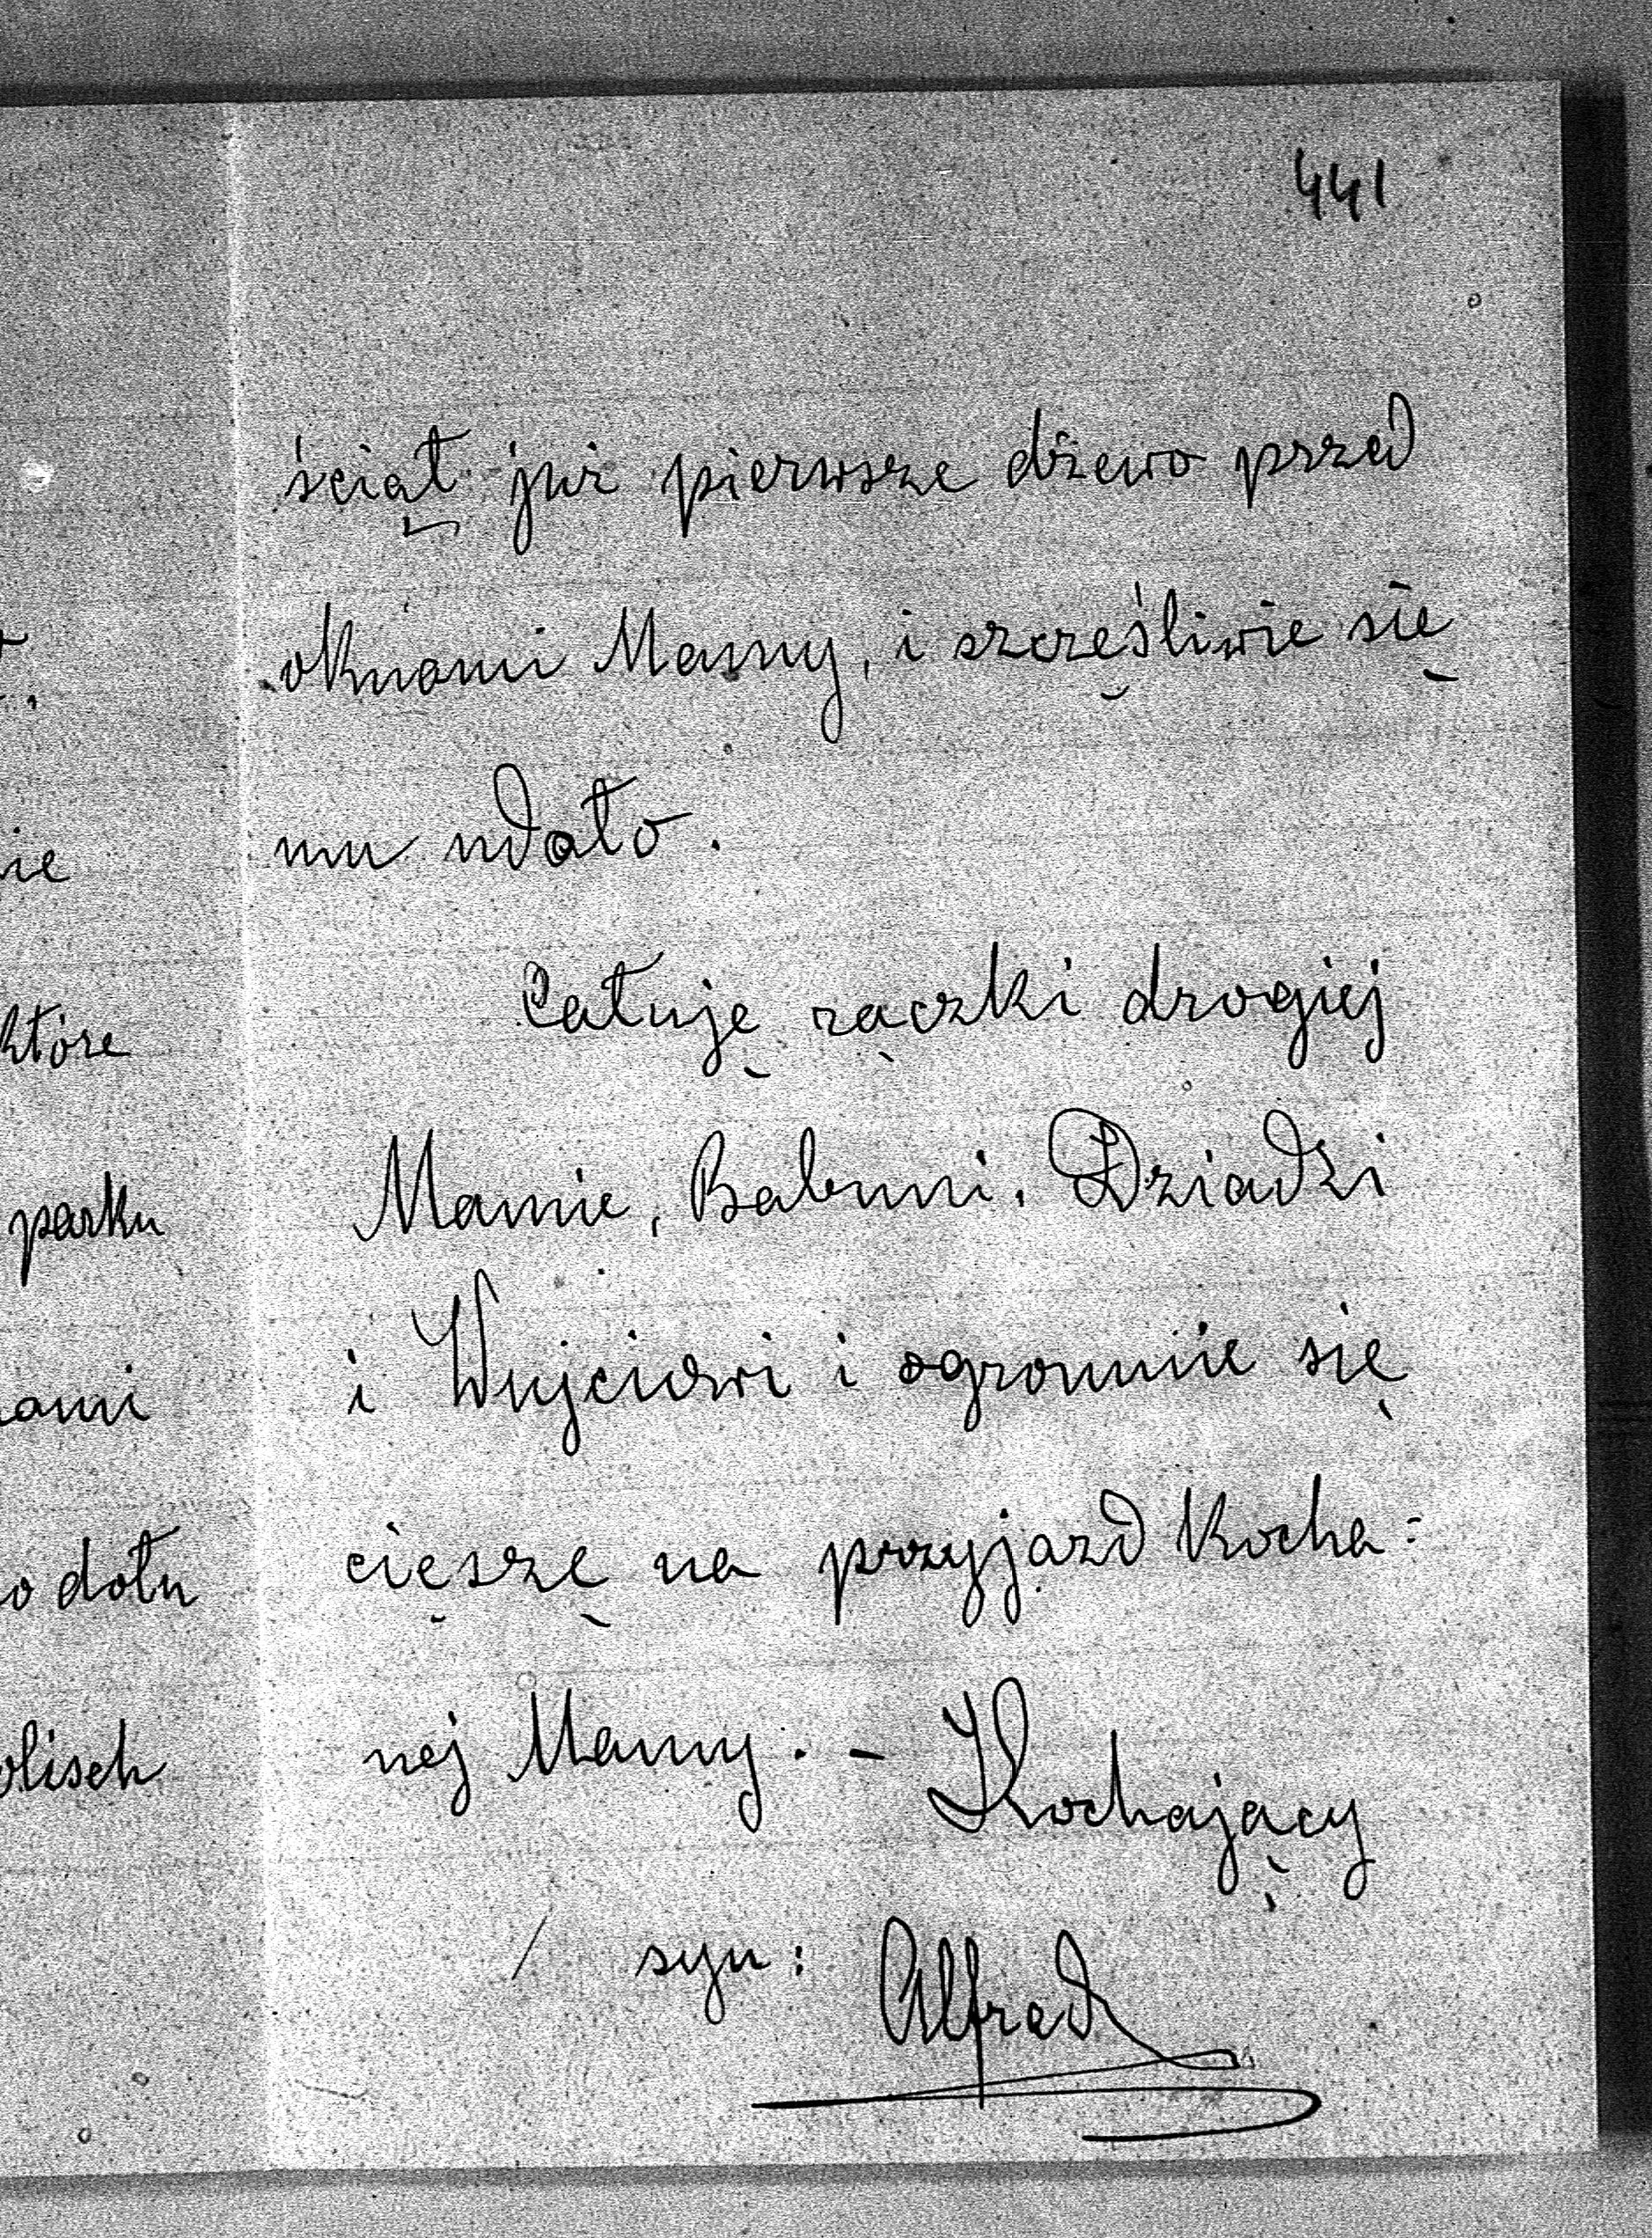 441
ściął już pierwsze dżewo przed
oknami Mamy, i szczęśliwie się
mu udało.
Całuję rączki drogiej
Mamie, Babuni, Dziadzi
i Wujciowi i ogromnie się
cięszę na przyjazd Kocha=
nej Mamy. - Kochający
syn: Alfred
nie
które
parku
nami
o dołu
olisch